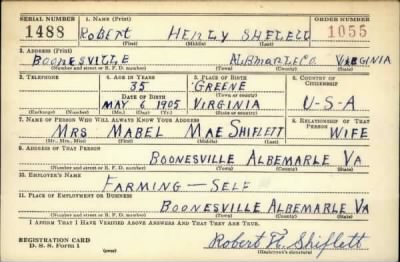 SERIAL NUMBER 1. NAME (Print) ORDER NUMBER
1488 ROBERT HENRY SHFLETT 1055
(First) (Middle) (Last)
2. ADDRESS (Print)
BOONESVILLE ALBMARLE CO. VIRGINIA
(Number and street or R. F. D. number) (Town) (County) (State)
3. TELEPHONE 4. AGE IN YEARS 5. PLACE OF BIRTH 6. COUNTRY OF CITIZENSHIP
35 GREENE
DATE OF BIRTH (Town or county)
MAY 6 1905 VIRGINIA U-S-A
(Exchange) (Number) (Mo.) (Day) (Yr.) (State or country)
7. NAME OF PERSON WHO WILL ALWAYS KNOW YOUR ADDRESS 8. RELATIONSHIP OF THAT PERSON
MRS MABEL MAE SHIFLETT WIFE
(Mr., Mrs., Miss) (First) (Middle) (Last)
9. ADDRESS OF THAT PERSON
BOONESVILLE ALBEMARLE VA
(Number and street or R. F. D. number) (Town) (County) (State)
10. EMPLOYER'S NAME
FARMING — SELF
11. PLACE OF EMPLOYMENT OR BUSINESS
BOONESVILLE ALBEMARLE VA
(Number and street or R. F. D. number) (Town) (County) (State)
I AFFIRM THAT I HAVE VERIFIED ABOVE ANSWERS AND THAT THEY ARE TRUE.
REGISTRATION CARD
D. S. S. Form 1 (over) Robert H. Shiflett
(Registrant's signature)